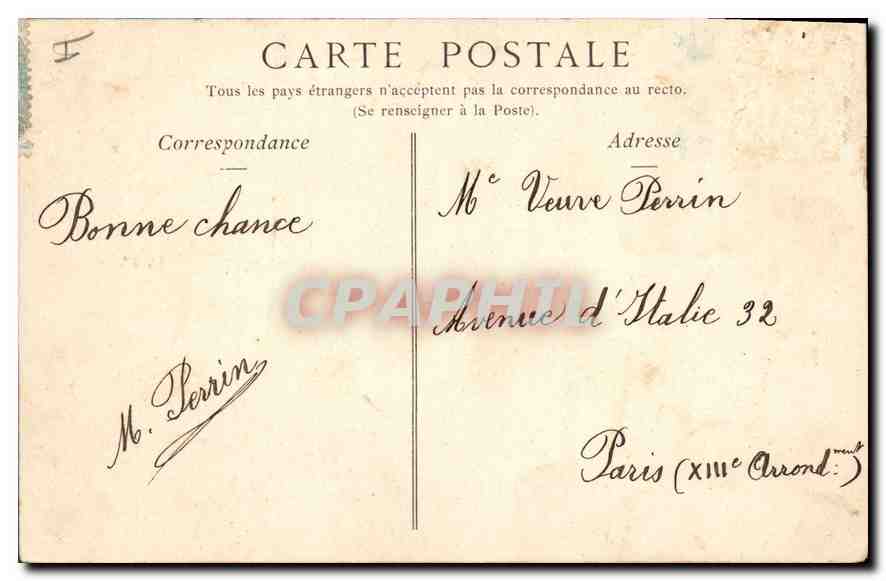 CARTE POSTALE
Tous les pays étrangers n'acceptent pas la correspondance au recto.
(Se renseigner à la Poste).
Correspondance
Bonne chance
M. Perrin
Adresse
Me Veuve Perrin
Avenue d'Italie 32
Paris (XIIIe Arrond.ment)
CPAPHIL